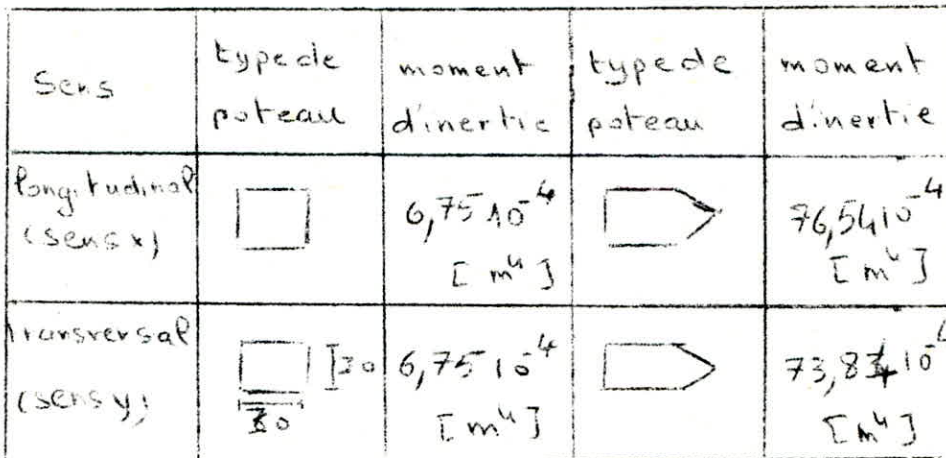 Sens
type de
poteau
moment
d'inertie
type de
poteau
moment
d'inertie
longitudinal
(sens x)
6,75 10⁻⁴
[m⁴]
76,54 10⁻⁴
[m⁴]
transversal
(sens y)
30
30
6,75 10⁻⁴
[m⁴]
10⁻⁴
[m⁴]